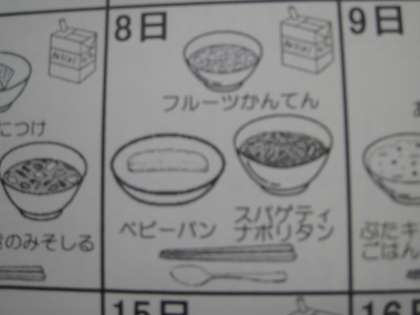 8日
9日
フルーツかんてん
につけ
ベビーパン
スパゲティ
ナポリタン
のみそしる
ぶたキ
ごはん
15日
16日